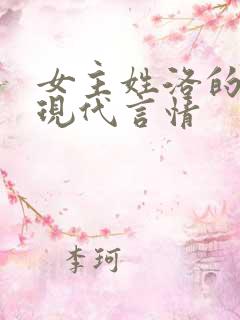 女主姓洛的
現代言情
李珂